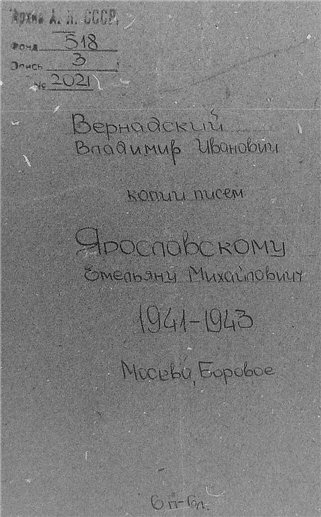 Архив А. Н. СССР.
Фонд 518
Опись 3
№ 2021
Вернадский
Владимир Иванович
копии писем
Ярославскому
Емельяну Михайлович
1941-1943
Москва, Боровое